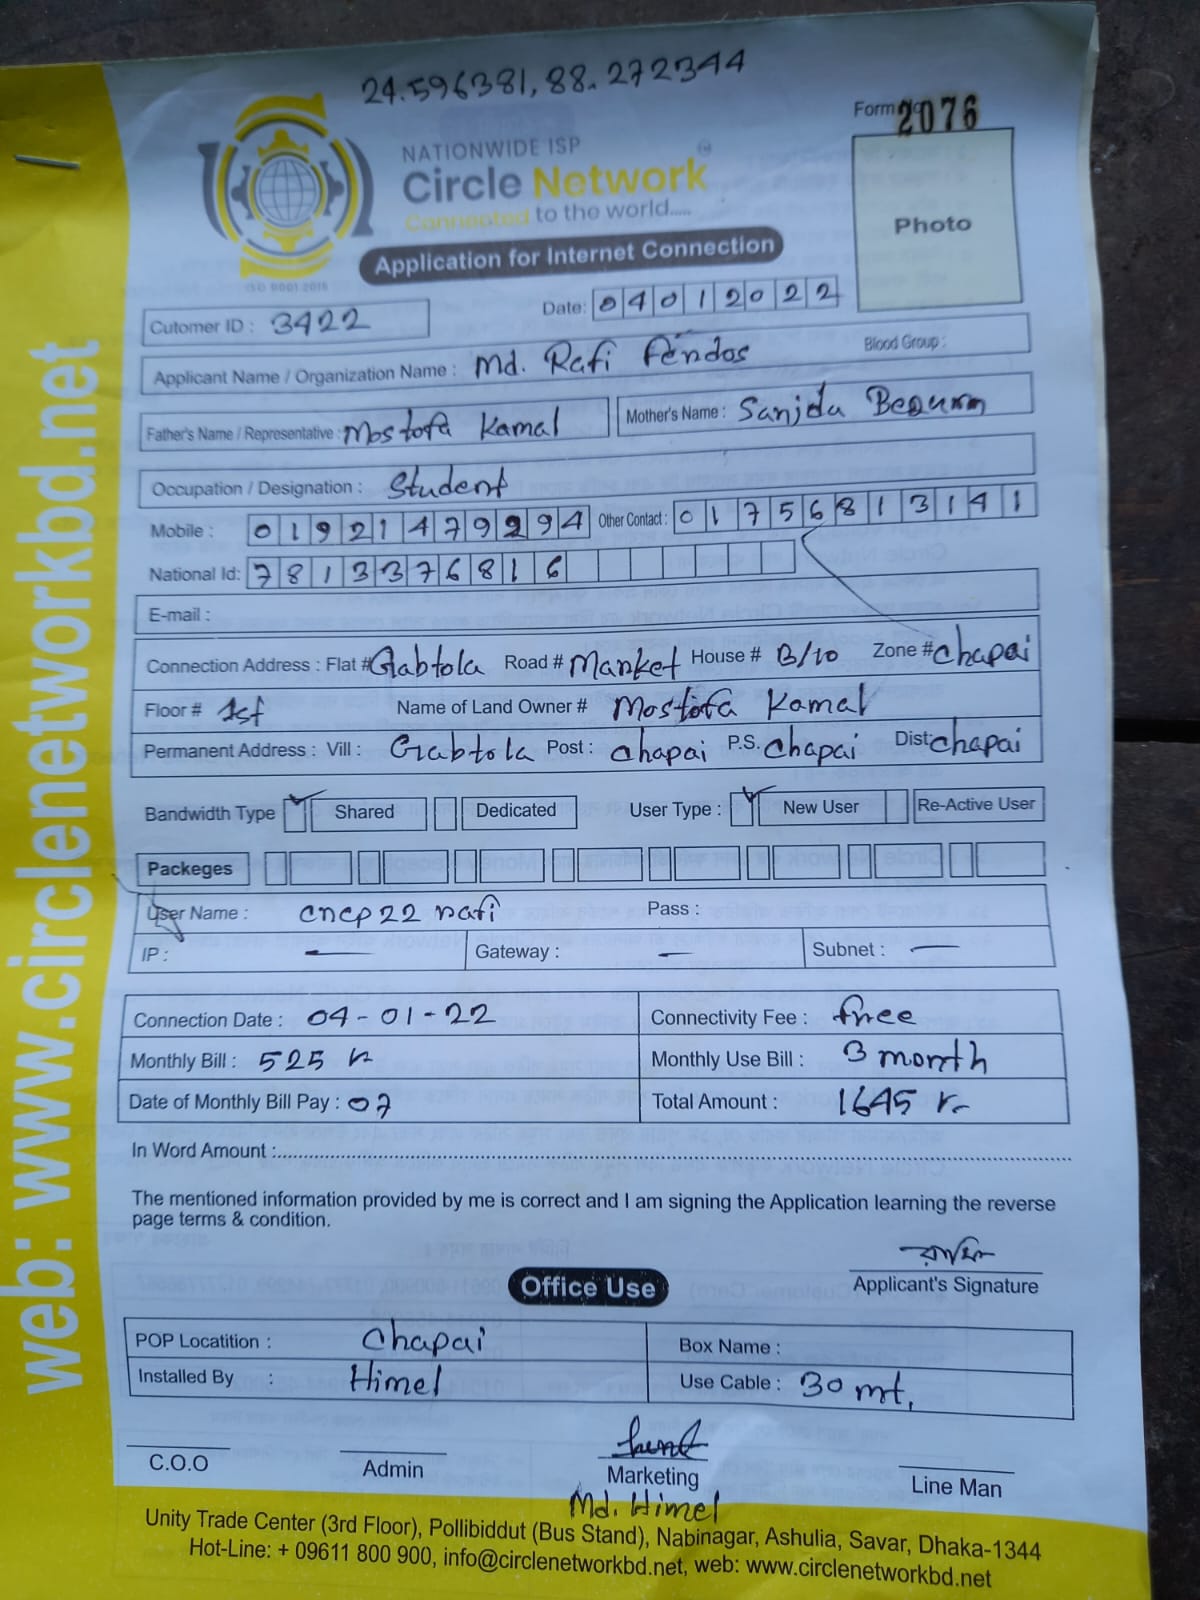 24.596381, 88.272344
Form No 2076
NATIONWIDE ISP
Circle Network
Connected to the world.....
Photo
Application for Internet Connection
ISO 9001:2015
Date: 04012022
Cutomer ID : 3422
Applicant Name / Organization Name : Md. Rafi Ferdos Blood Group :
Father's Name / Representative : Mostofa Kamal Mother's Name : Sanjda Begum
Occupation / Designation : Student
Mobile : 01921479294 Other Contact : 01756813141
National Id: 7813376816
E-mail :
Connection Address : Flat # Gabtola Road # Market House # B/10 Zone # Chapai
Floor # 1st Name of Land Owner # Mostofa Kamal
Permanent Address : Vill : Grabtola Post : Chapai P.S. Chapai Dist: Chapai
Bandwidth Type Shared Dedicated User Type : New User Re-Active User
Packeges
User Name : cncp22 rafi Pass :
IP : — Gateway : — Subnet : —
Connection Date : 04-01-22 Connectivity Fee : free
Monthly Bill : 525 Monthly Use Bill : 3 month
Date of Monthly Bill Pay : 07 Total Amount : 1645
In Word Amount :
The mentioned information provided by me is correct and I am signing the Application learning the reverse
page terms & condition.
রাফি
Applicant's Signature
Office Use
POP Locatition : Chapai Box Name :
Installed By : Himel Use Cable : 30 mt.
C.O.O Admin Marketing Line Man
Md. Himel
Unity Trade Center (3rd Floor), Pollibiddut (Bus Stand), Nabinagar, Ashulia, Savar, Dhaka-1344
Hot-Line: + 09611 800 900, info@circlenetworkbd.net, web: www.circlenetworkbd.net
web: www.circlenetworkbd.net